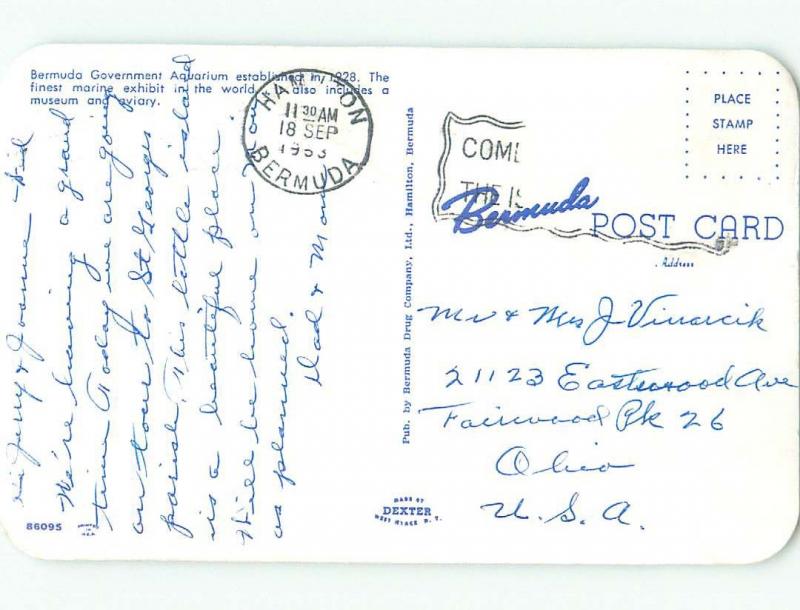 Bermuda Government Aquarium established in 1928. The
finest marine exhibit in the world. It also includes a
museum and aviary.
Jerry & Joanne
We're having a grand
time. Today we are going
on tour to St Georges
parish. This little island
is a beautiful place.
Will be home on
as planned.
Dad & Mom
86095
HAMILTON
11 30 AM
18 SEP
BERMUDA
Pub. by Bermuda Drug Company, Ltd., Hamilton, Bermuda
MADE BY
DEXTER
WEST NYACK N. Y.
COME
THE IS
PLACE
STAMP
HERE
Bermuda POST CARD
Address
Mr & Mrs J Vinarcik
21123 Eastwood Ave
Fairwood Pk 26
Ohio
U. S. A.